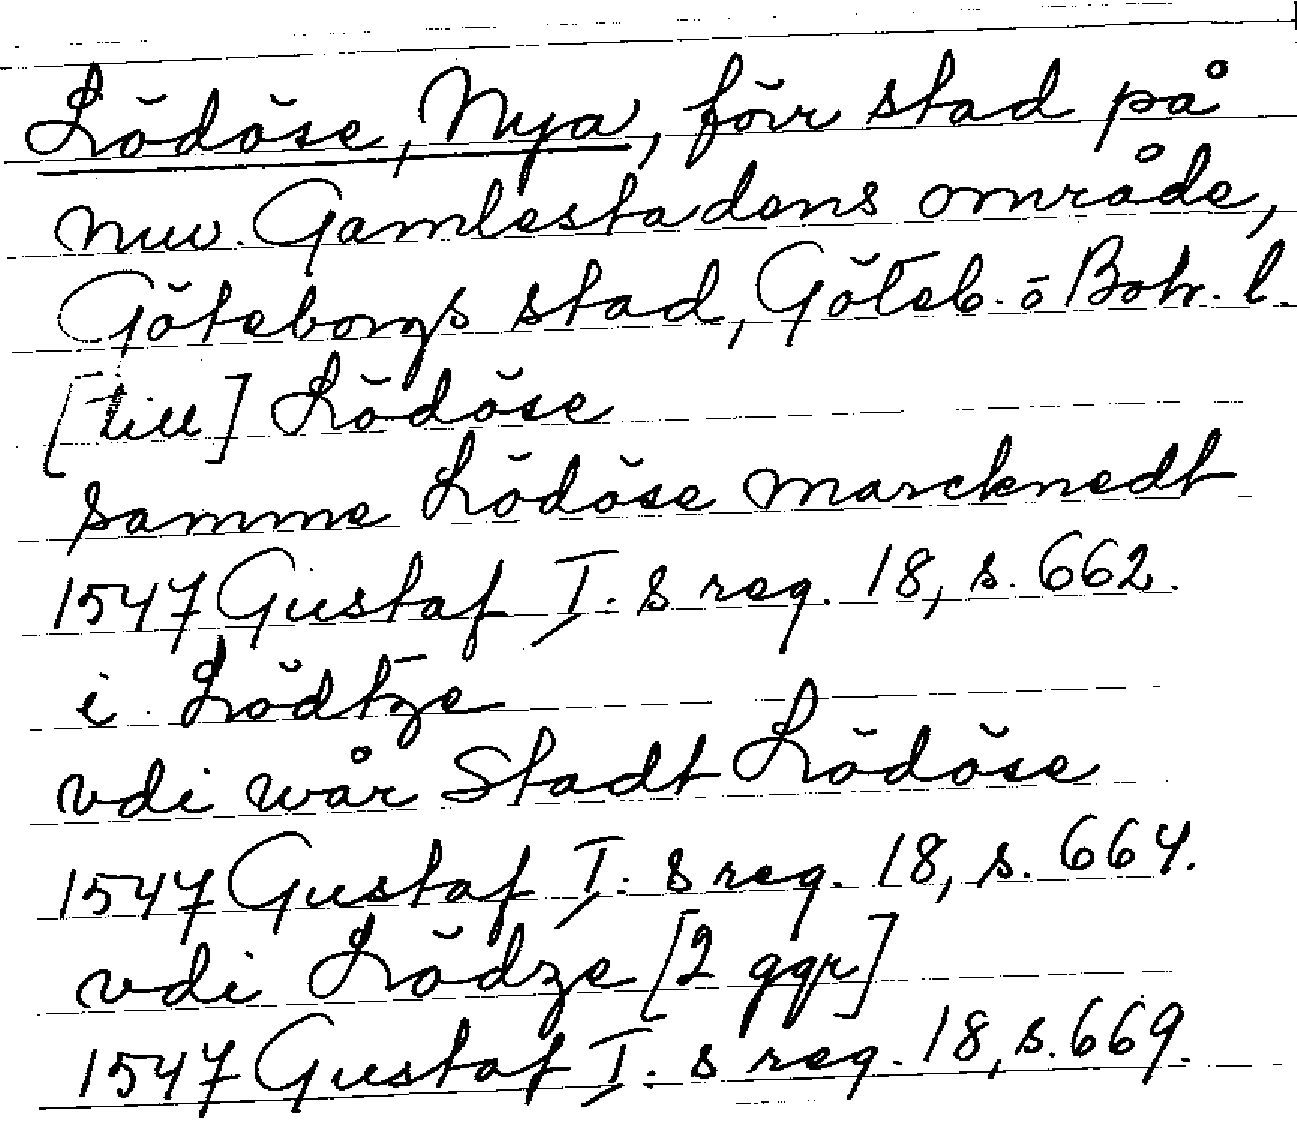 Lödöse, Nya, förr stad på
nuv. Gamlestadens område,
Göteborgs stad, Göteb. o Boh. l.
[till] Lödöse
samme Lödöse marcknedt
1547 Gustaf I:s reg. 18, s. 662.
i Lödtze
vdi wår Stadt Lödöse
1547 Gustaf I:s reg. 18, s. 664.
vdi Lödze [2 ggr]
1547 Gustaf I:s reg. 18, s. 669.